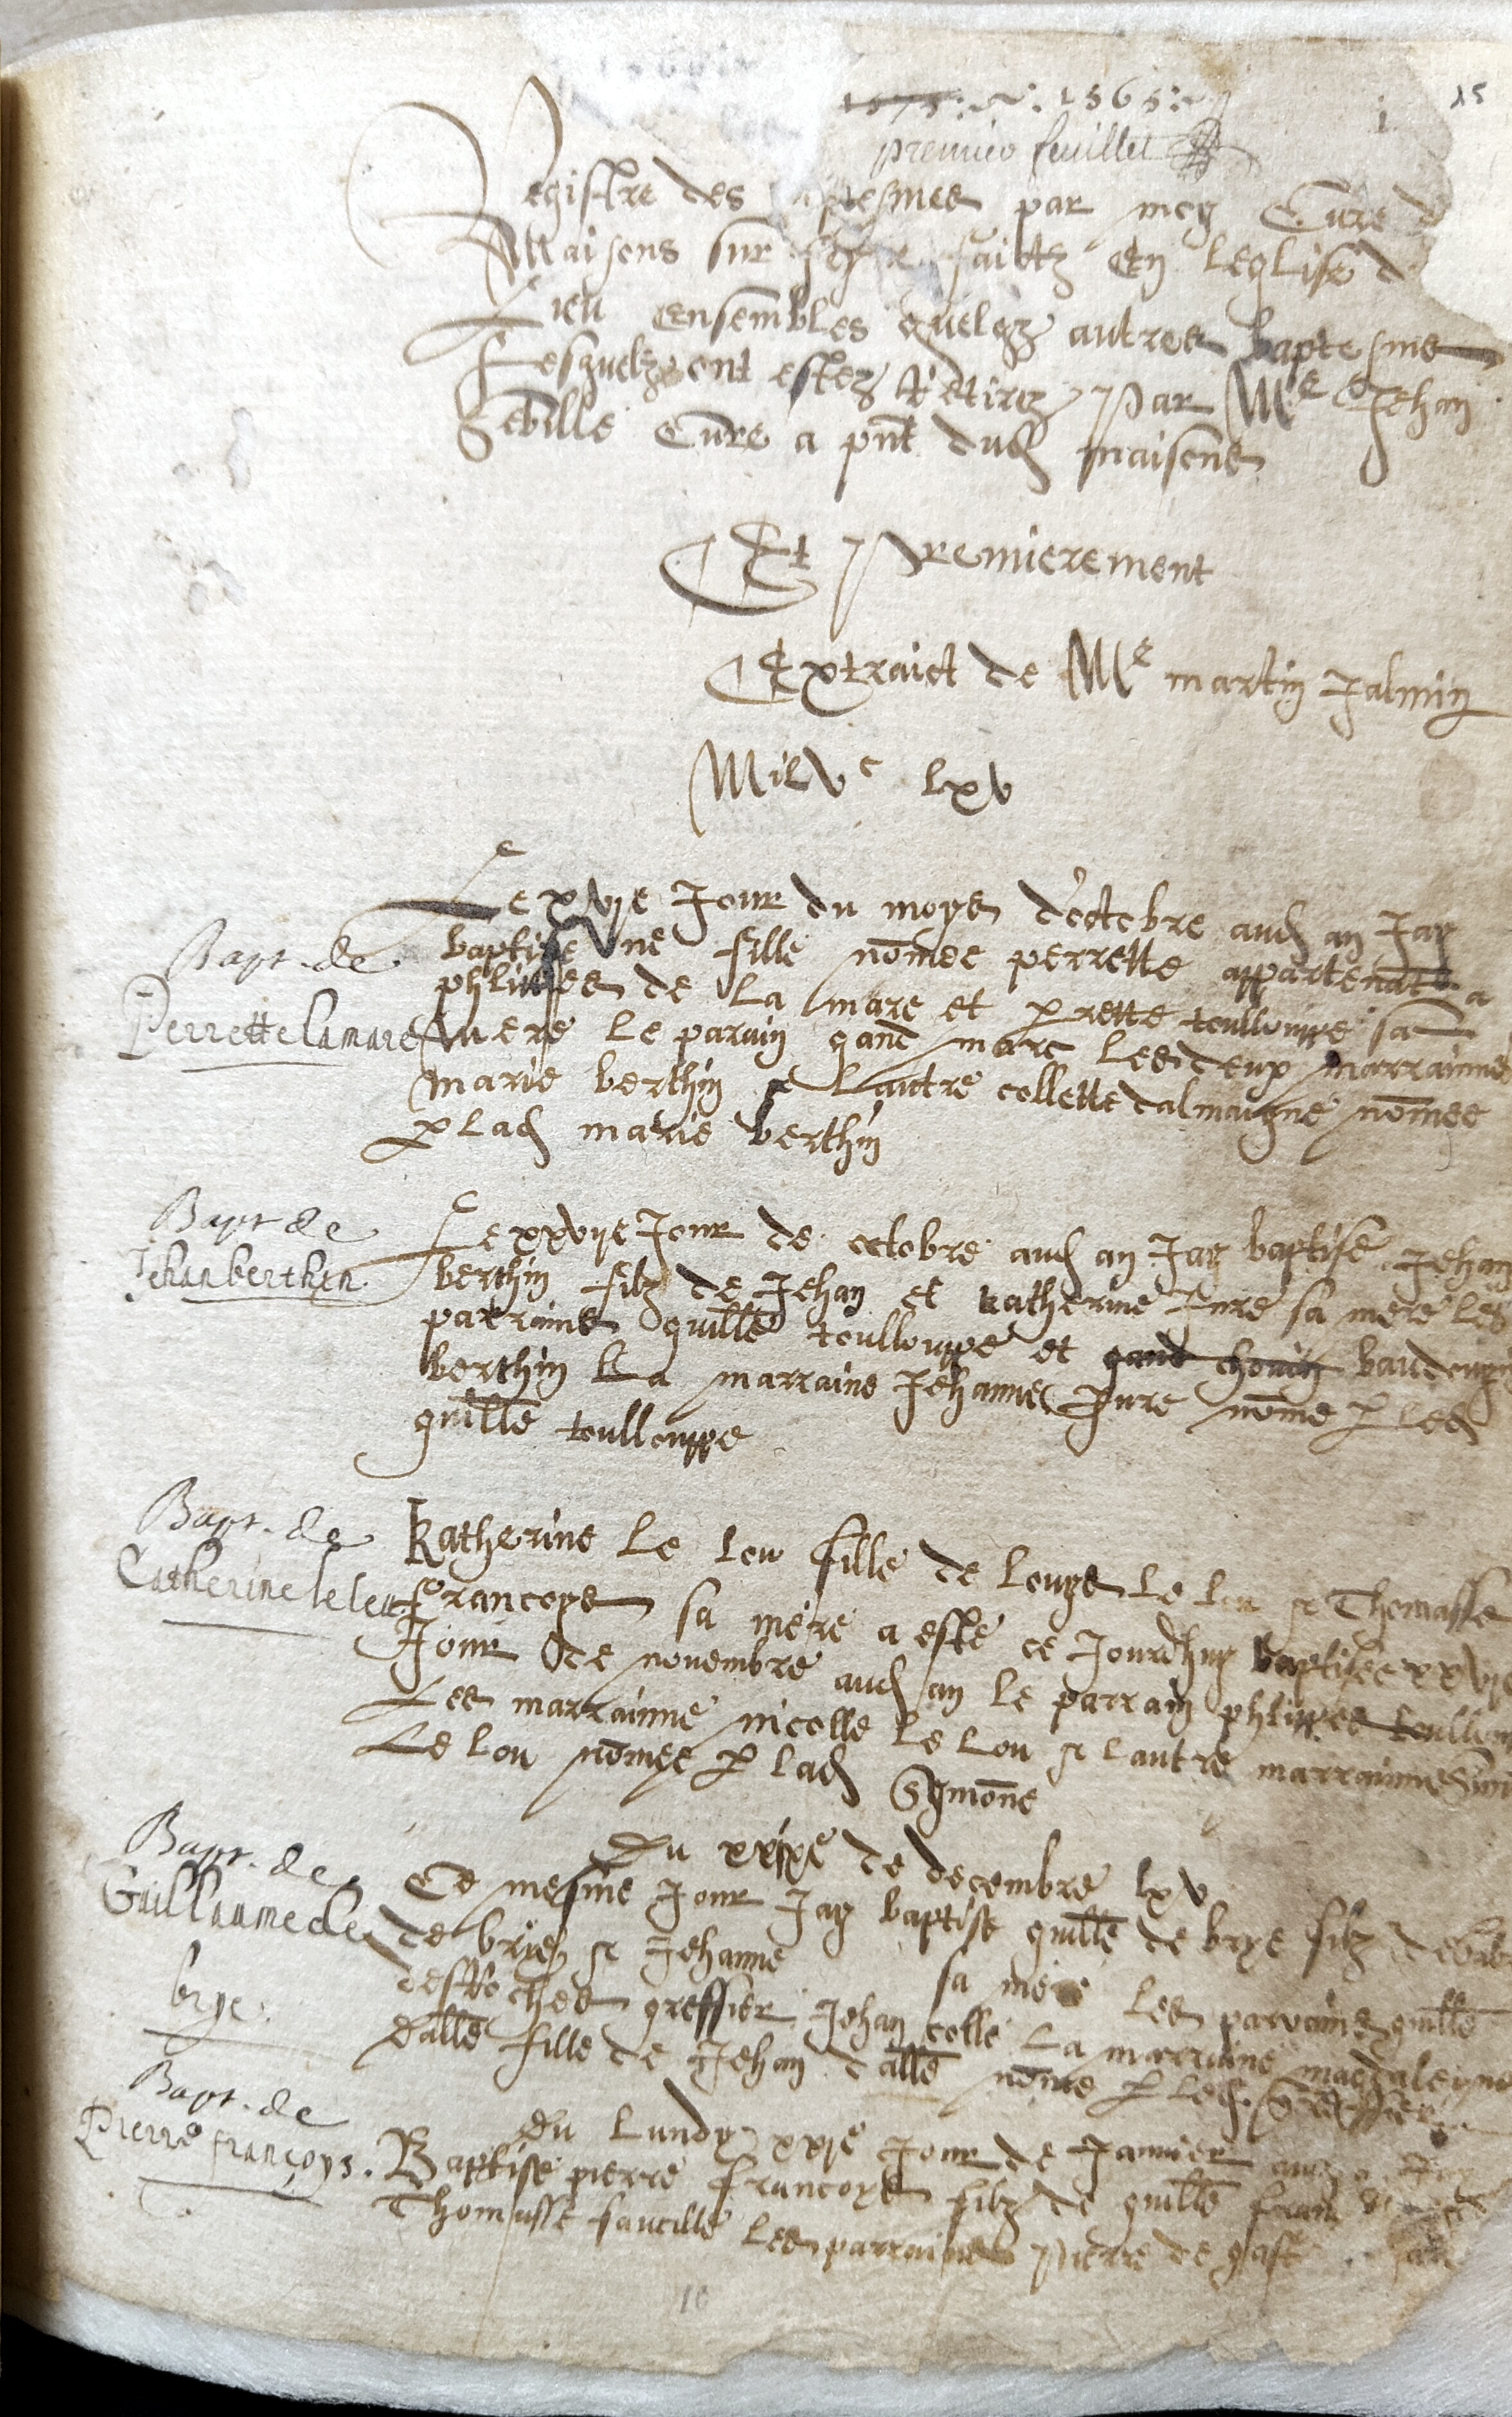 1575 : 1565 :
15
1
premier feuillet
Registre des baptesmes par moy Cure d
Maisons sur seyne faictz En leglise d
Lieu Ensembles quelqz autres baptesmes
Lesquelz ont estez Retirez Par Me Jehan
Sebille Cure a pnt dud maisons
Et Premierement
Extraict de Me martin Jalmin
Mil Vc lxv
Le xvje Jour du moys doctobre aud an Jay
baptise une fille nomee perrette appartenate a
phlippes de La mare et prette toulloupe sa
Mere le parain marc les deux marrainnes
marie berthin et Lautre collette dalmaigne nomee
p lad marie berthin
Bapt. de
Perrette lamare
Le xxvije Jour de octobre aud an Jay baptise Jehan
berthin filz de Jehan et katherine Jure sa mere les
parrains guille toulloupe et baudouyn
berthin La marraine Jehanne Jure nome p led
guille toulloupe
Bapt de
Jehan berthin
Katherine le lou fille de Louys le lou et Thomasse
francoys sa mere a este ce Jourdhuy baptisee xxvje
Jour de novembre aud an le parrain phlippes toulloupe
Les marrainne nicolle le lou et lautre marrainne Sim
Le lou nomee p lad Symone
Bapt. de
Catherine le leu
Du xxixe de decembre lxv
Ce mesme Jour Jay baptise guille de brye filz de
de brye et Jehanne sa mere les parrains guille
desRoches greffier Jehan colle La marraine magdaleyne
dalle fille de Jehan dalle nome p led greffier
Bapt. de
Guillaume de
brye.
Du Lundy xxje Jour de Janvier aud an Jay
Baptise pierre francoys filz de guille fran
Thomasse faucille les parrains pierre de gast
Bapt. de
Pierre françoys.
10